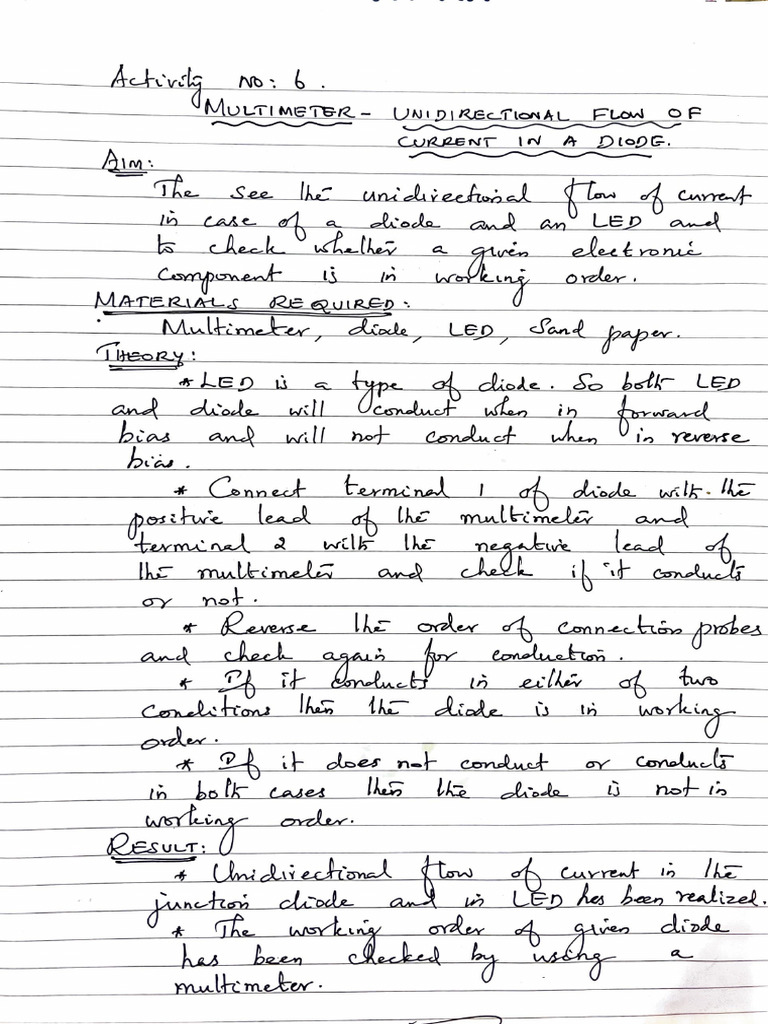 Activity no: 6.
MULTIMETER - UNIDIRECTIONAL FLOW OF
CURRENT IN A DIODE.
AIM:
The see the unidirectional flow of current
in case of a diode and an LED and
to check whether a given electronic
component is in working order.
MATERIALS REQUIRED:
Multimeter, diode, LED, Sand paper.
THEORY:
* LED is a type of diode. So both LED
and diode will conduct when in forward
bias and will not conduct when in reverse
bias.
* Connect terminal 1 of diode with the
positive lead of the multimeter and
terminal 2 with the negative lead of
the multimeter and check if it conducts
or not.
* Reverse the order of connection probes
and check again for conduction.
* If it conducts in either of two
conditions then the diode is in working
order.
* If it does not conduct or conducts
in both cases then the diode is not in
working order.
RESULT:
* Unidirectional flow of current in the
junction diode and in LED has been realized.
* The working order of given diode
has been checked by using a
multimeter.